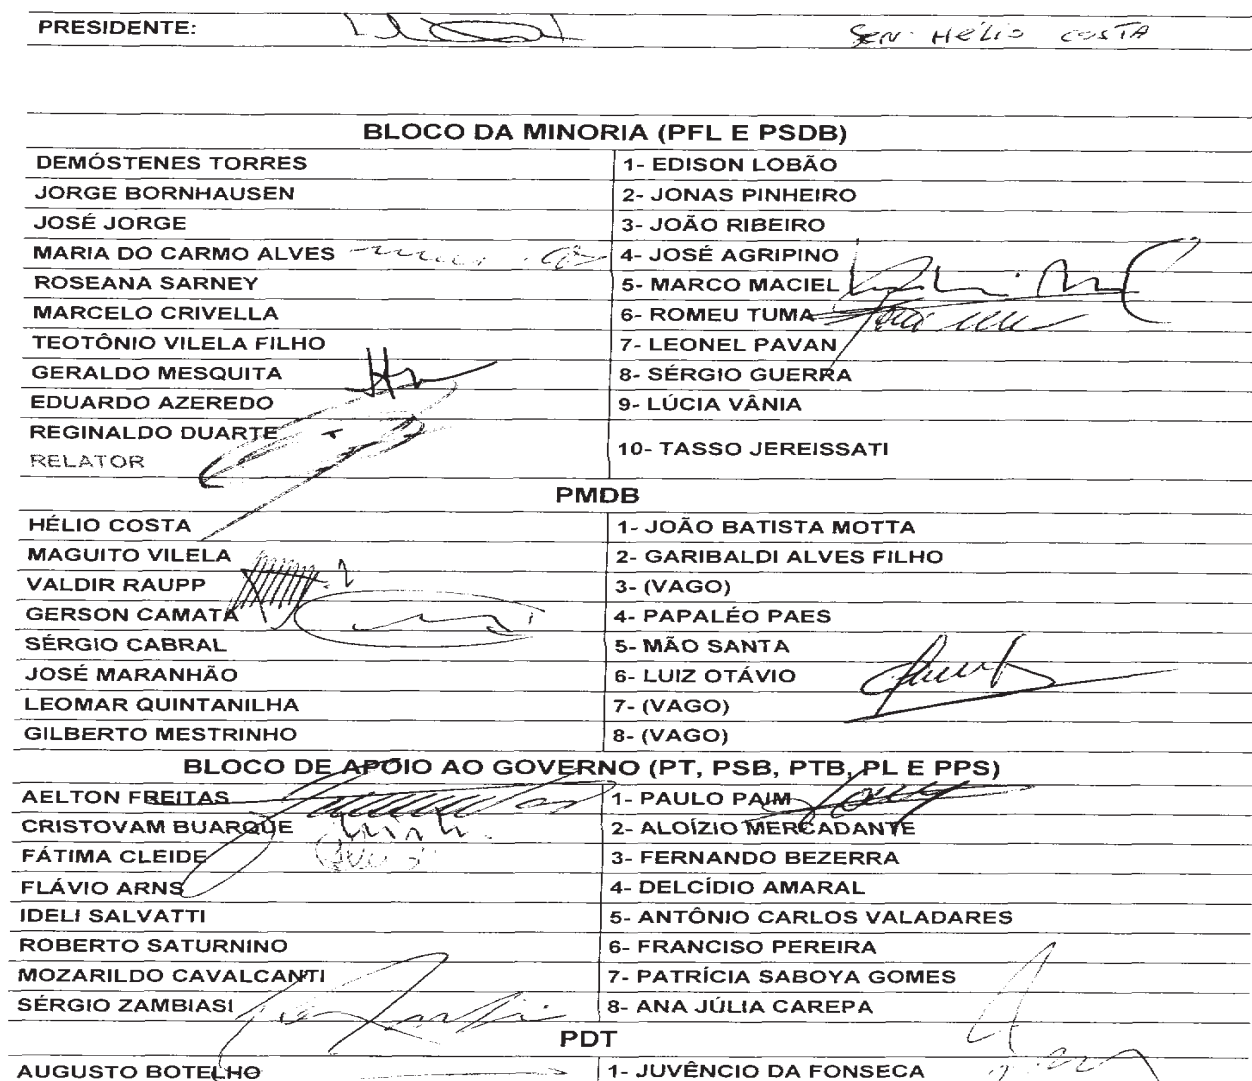 PRESIDENTE: SEN. HÉLIO COSTA
BLOCO DA MINORIA (PFL E PSDB)
DEMÓSTENES TORRES 1- EDISON LOBÃO
JORGE BORNHAUSEN 2- JONAS PINHEIRO
JOSÉ JORGE 3- JOÃO RIBEIRO
MARIA DO CARMO ALVES 4- JOSÉ AGRIPINO
ROSEANA SARNEY 5- MARCO MACIEL
MARCELO CRIVELLA 6- ROMEU TUMA
TEOTÔNIO VILELA FILHO 7- LEONEL PAVAN
GERALDO MESQUITA 8- SÉRGIO GUERRA
EDUARDO AZEREDO 9- LÚCIA VÂNIA
REGINALDO DUARTE
RELATOR 10- TASSO JEREISSATI
PMDB
HÉLIO COSTA 1- JOÃO BATISTA MOTTA
MAGUITO VILELA 2- GARIBALDI ALVES FILHO
VALDIR RAUPP 3- (VAGO)
GERSON CAMATA 4- PAPALÉO PAES
SÉRGIO CABRAL 5- MÃO SANTA
JOSÉ MARANHÃO 6- LUIZ OTÁVIO
LEOMAR QUINTANILHA 7- (VAGO)
GILBERTO MESTRINHO 8- (VAGO)
BLOCO DE APOIO AO GOVERNO (PT, PSB, PTB, PL E PPS)
AELTON FREITAS 1- PAULO PAIM
CRISTOVAM BUARQUE 2- ALOÍZIO MERCADANTE
FÁTIMA CLEIDE 3- FERNANDO BEZERRA
FLÁVIO ARNS 4- DELCÍDIO AMARAL
IDELI SALVATTI 5- ANTÔNIO CARLOS VALADARES
ROBERTO SATURNINO 6- FRANCISO PEREIRA
MOZARILDO CAVALCANTI 7- PATRÍCIA SABOYA GOMES
SÉRGIO ZAMBIASI 8- ANA JÚLIA CAREPA
PDT
AUGUSTO BOTELHO 1- JUVÊNCIO DA FONSECA